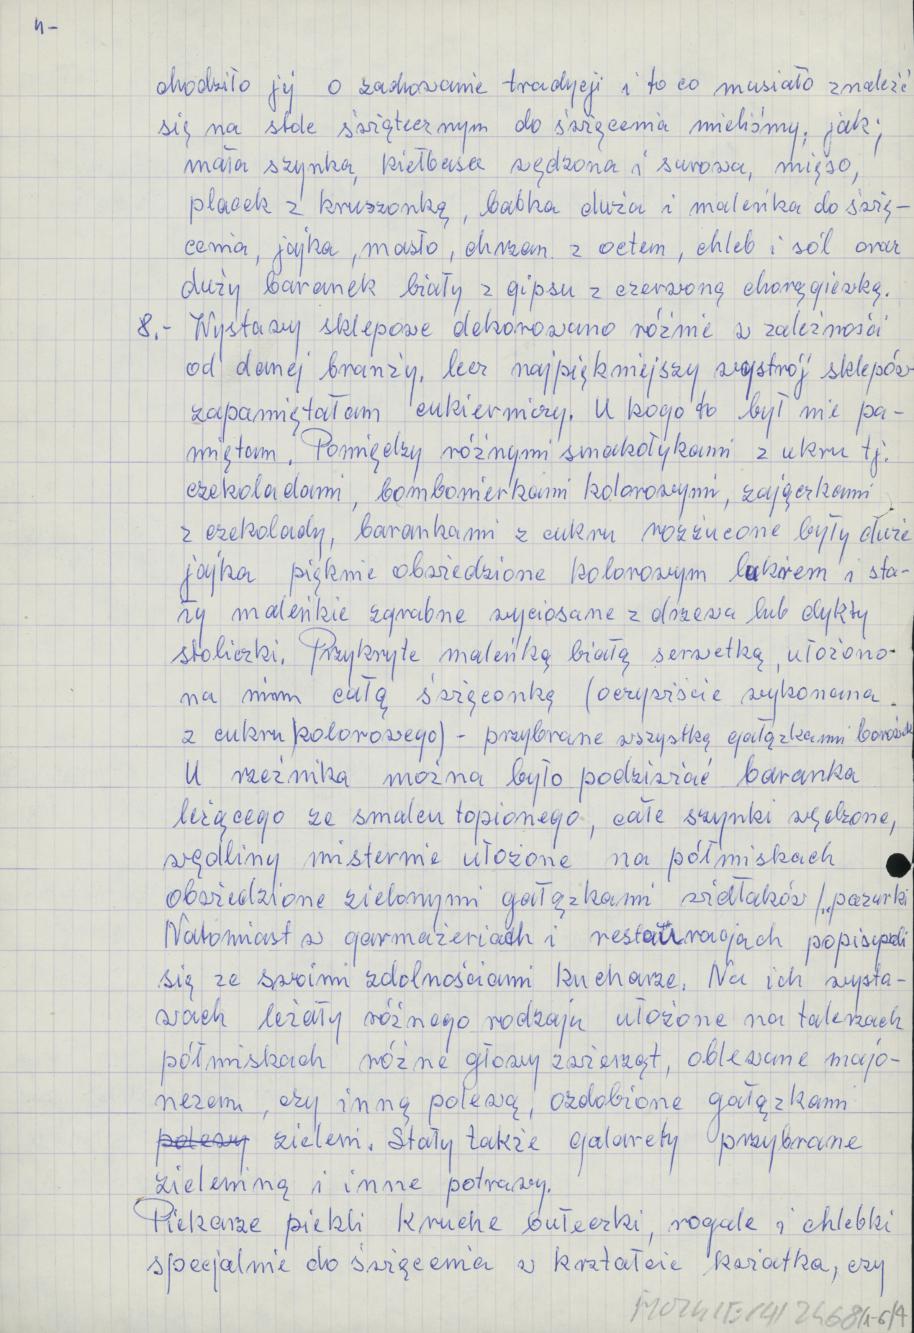 4-
chodziło jéj o zachowanie tradycji i to co musiało znaleźć
się na stole świątecznym do święcenia mieliśmy, jak;
mała szynka, kiełbasa wędzona i surowa, mięso,
placek z kruszonką, babka duża i maleńka do świę-
cenia, jajka, masło, chrzan z octem, chleb i sól oraz
duży baranek biały z gipsu z czerwoną chorągiewką.
8.- Wystawy sklepowe dekorowano różnie w zależności
od danej branży, lecz najpiękniejszy wystrój sklepów
zapamiętałam cukierniczy. U kogo to był nie pa-
miętam. Pomiędzy różnymi smakołykami z cukru tj.
czekoladami, bombonierkami kolorowymi, zajączkami
z czekolady, barankami z cukru rozrzucone były duże
jajka pięknie obwiedzione kolorowym lukrem i sta-
ły maleńkie zgrabne wyciosane z drzewa lub dykty
stoliczki. Przykryte maleńką białą serwetką, ułożono
na nim całą święconką (oczywiście wykonana
z cukru kolorowego) - przybrane wszystką gałązkami borówk
U rzeźnika można było podziwiać baranka
leżącego ze smalcu topionego, całe szynki wędzone,
wędliny misternie ułożone na półmiskach
obwiedzione zielonymi gałązkami widłaków /„pazurki
Natomiast w garmażeriach i restauracjach popisywali
się ze swoimi zdolnościami kucharze. Na ich wysta-
wach leżały różnego rodzaju ułożone na talerzach
półmiskach różne głowy zwierząt, oblewane majo-
nezem, czy inną polewą, ozdobione gałązkami
polewy zieleni. Stały także galarety przybrane
zieleniną i inne potrawy.
Piekarze piekli kruche bułeczki, rogale i chlebki
specjalnie do święcenia w kształcie kwiatka, czy
2468/1-6/4